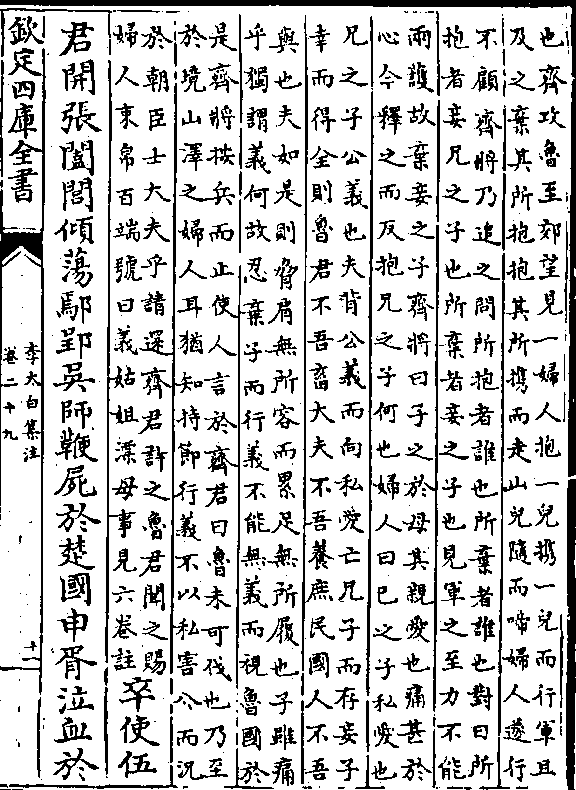 也齊攻魯至郊望見一婦人抱一兒携一兒而行軍且
及之棄其所抱抱其所携而走山兒隨而啼婦人遂行
不顧齊將乃追之問所抱者誰也所棄者誰也對曰所
抱者妾兄之子也所棄者妾之子也見軍之至力不能
兩護故棄妾之子齊將曰子之於母其親愛也痛甚於
心今釋之而反抱兄之子何也婦人曰已之子私愛也
兄之子公義也夫背公義而向私愛亡兄子而存妾子
幸而得全則魯君不吾畜大夫不吾養庶民國人不吾
與也夫如是則脅肩無所容而累足無所履也子雖痛
乎獨謂義何故忍棄子而行義不能無義而視魯國於
是齊將按兵而止使人言於齊君曰魯未可伐也乃至
於境山澤之婦人耳猶知持節行義不以私害公而況
於朝臣士大夫乎請還齊君許之魯君聞之賜
婦人束帛百端號曰義姑姐漂母事見六卷註
卒使伍
君開張闔閭傾蕩鄢郢吳師鞭屍於楚國申胥泣血於
欽定四庫全書
李太白集注
卷二十九
十一